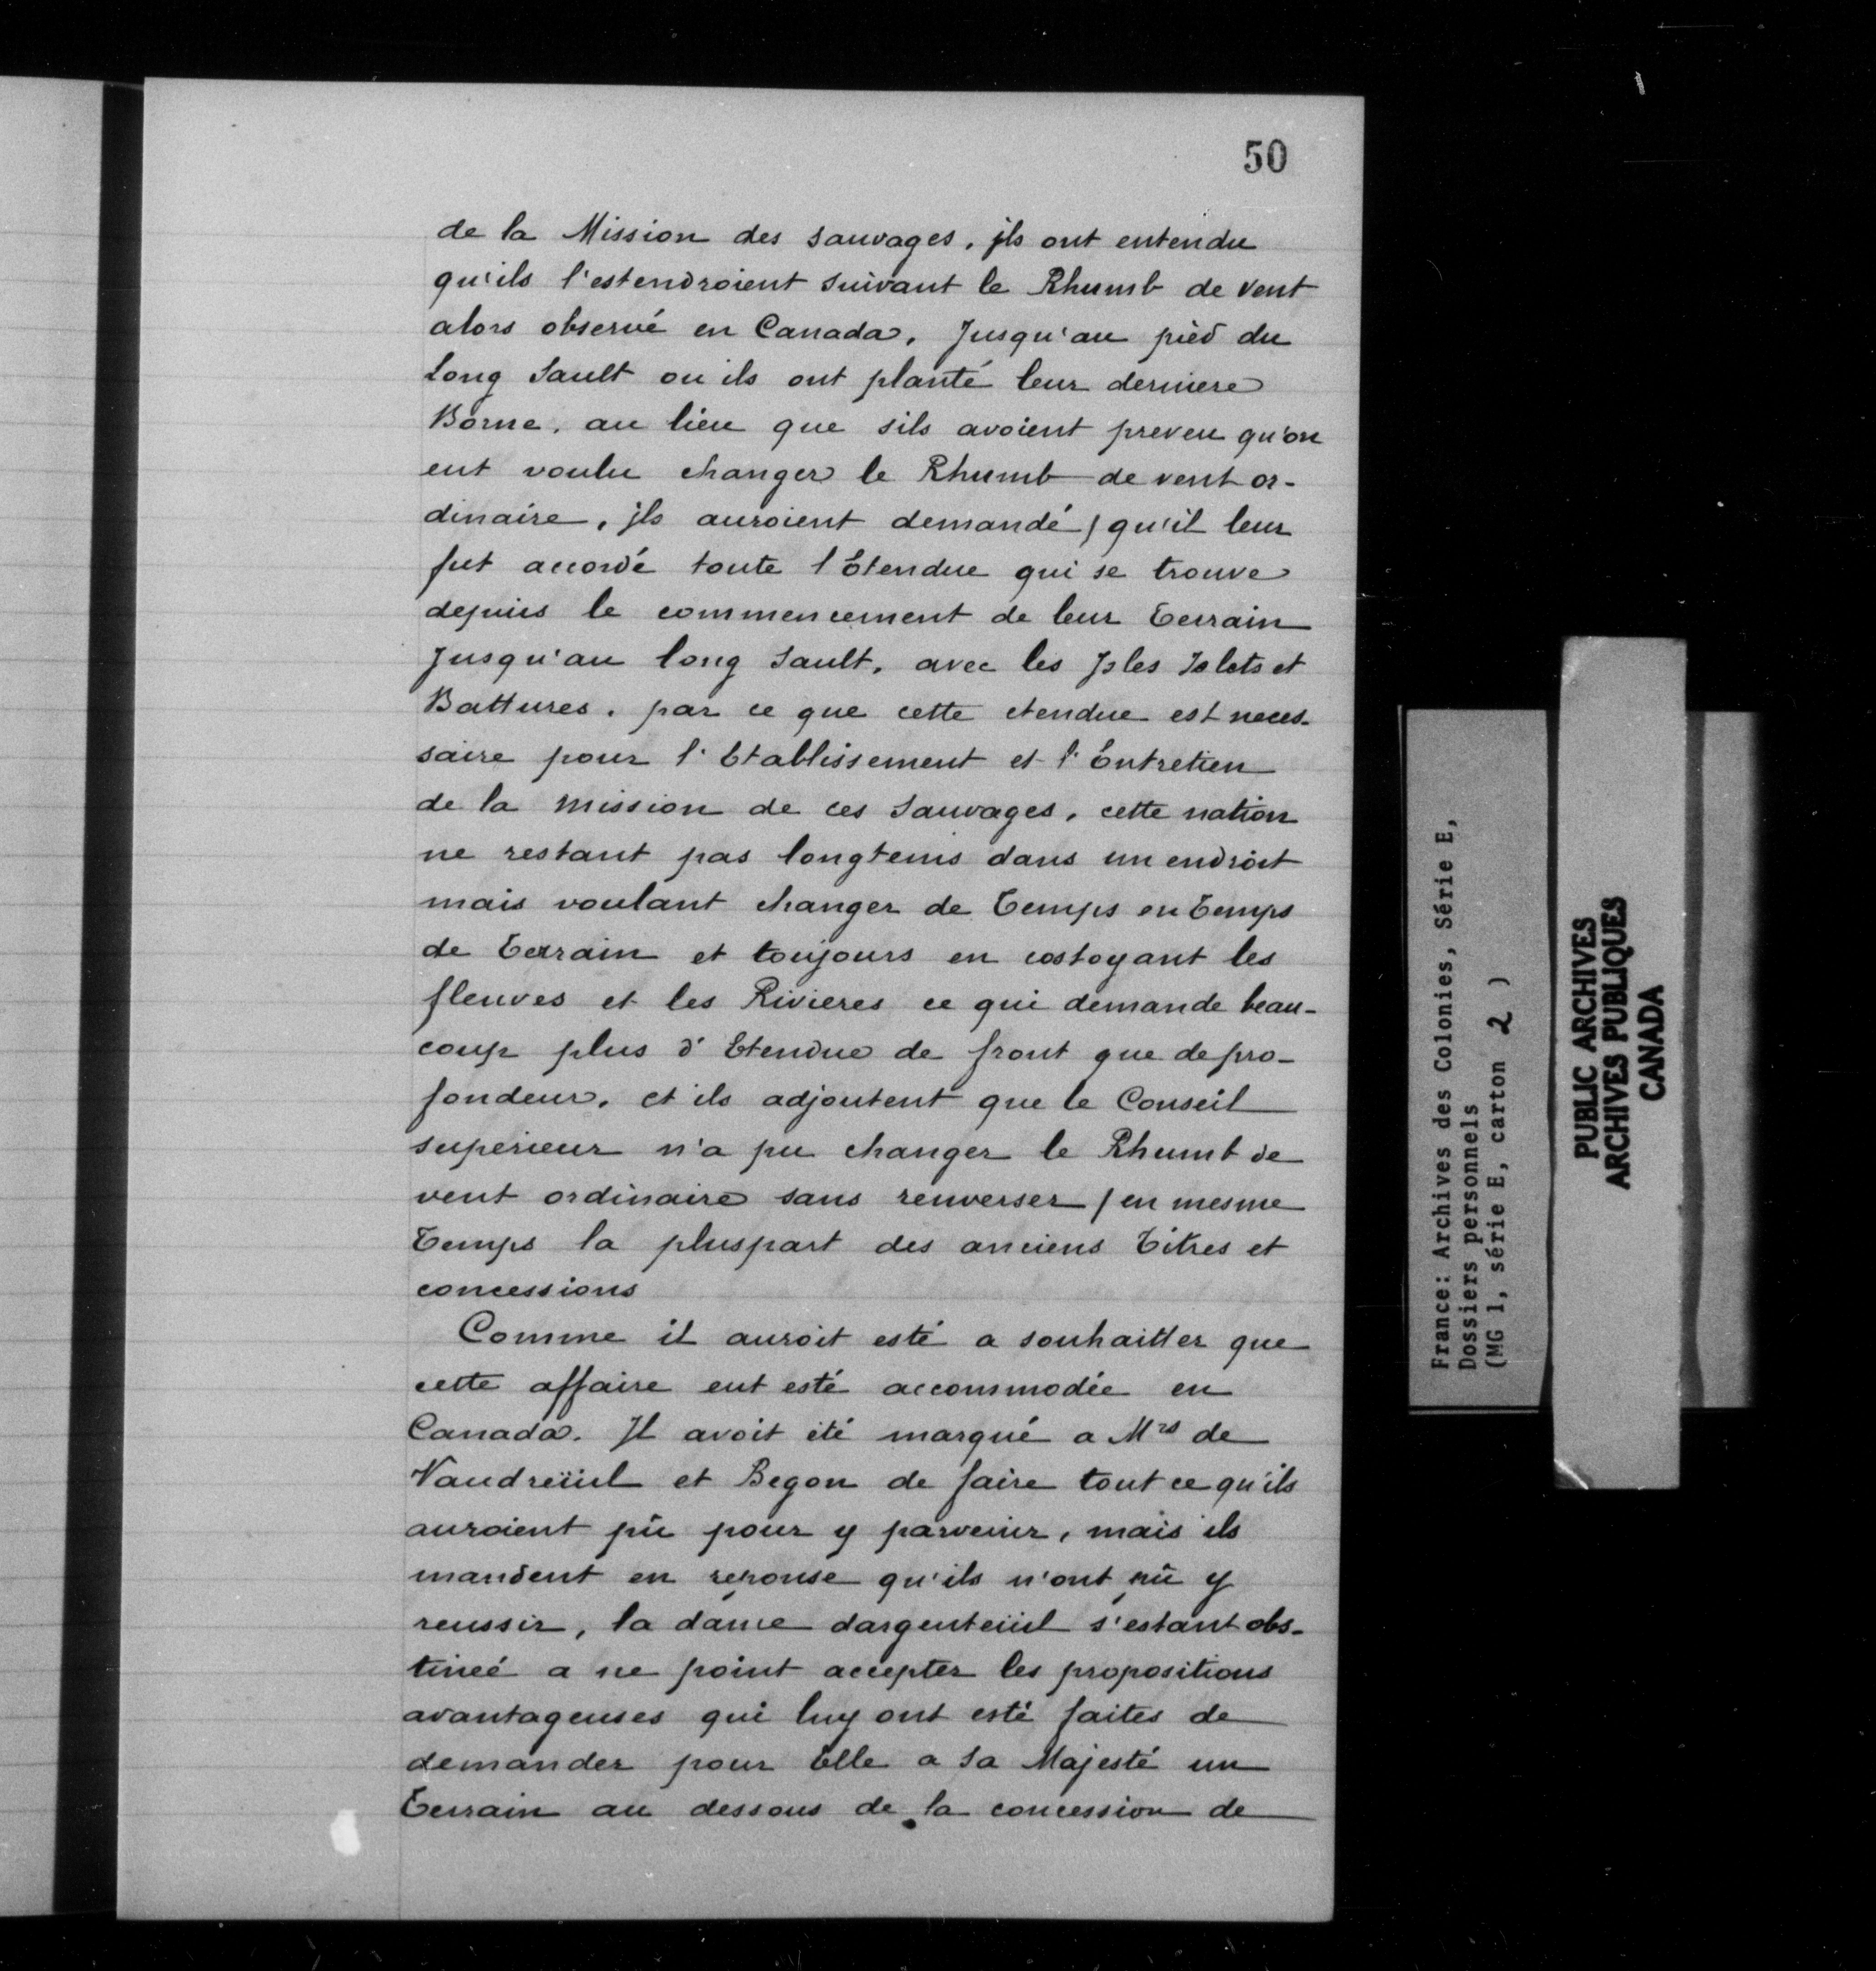 50
de la Mission des sauvages, jls ont entendu
qu'ils l'estendroient suivant le Rhumb de vent
alors observé en Canada, Jusqu'au pied du
Long Sault ou ils ont planté leur derniere
Borne, au lieu que sils avoient preveu qu'on
eut voulu changer le Rhumb de vent or-
dinaire, jls auroient demandé / qu'il leur
fut accordé toute l'Etendue qui se trouve
depuis le commencement de leur Terrain
Jusqu'au long Sault, avec les Jsles Islets et
Battures, par ce que cette etendue est neces-
saire pour l'Etablissement et l'Entretien
de la mission de ces Sauvages, cette nation
ne restant pas longtems dans un endroit
mais voulant changer de Temps en Temps
de Terrain et toujours en costoyant les
fleuves et les Rivieres ce qui demande beau-
coup plus d'Etendue de front que de pro-
fondeur, et ils adjoutent que le Conseil
superieur n'a pu changer le Rhumb de
vent ordinaire sans renverser / en mesme
Temps la pluspart des anciens Titres et
concessions
Comme il auroit esté a souhaitter que
cette affaire eut esté accommodée en
Canada. Jl avoit été marqué a Mrs de
Vaudreüil et Begon de faire tout ce qu'ils
auroient pû pour y parvenir, mais ils
mandent en reponse qu'ils n'ont pû y
reussir, la dame dargenteüil s'estant obs-
tineé a ne point accepter les propositions
avantageuses qui luy ont esté faites de
demander pour Elle a Sa Majesté un
Terrain au dessous de la concession de
France: Archives des Colonies, Série E,
Dossiers personnels
(MG 1, série E, carton 2 )
PUBLIC ARCHIVES
ARCHIVES PUBLIQUES
CANADA